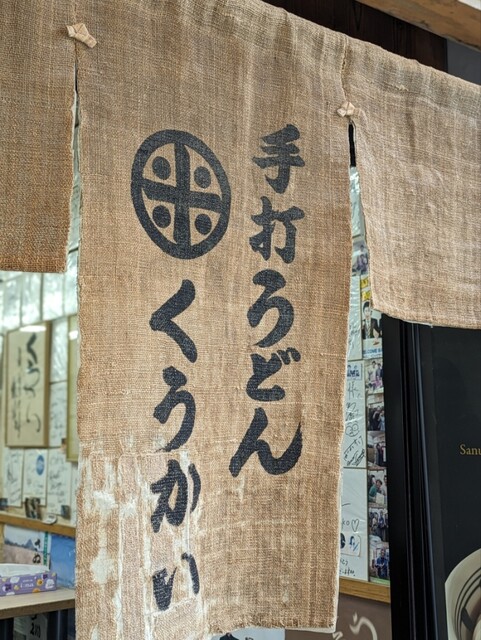 手打うどん
くうかい
Sanu